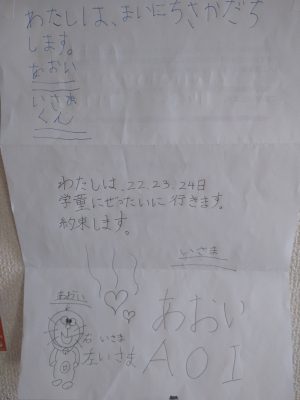 わたしは、まいにちさかだち
します。
あおい
いさま
くん
わたしは、22、23、24日
学童にぜったいに行きます。
約束します。
いさま
あおい
右いさま
左いさま
あおい
AOI